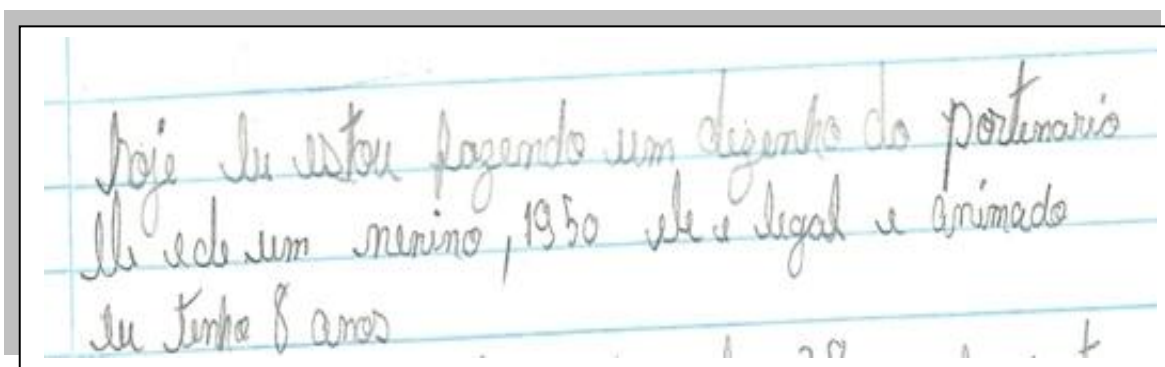 hoje eu estou fazendo um dezenho do portinario
ele e de um menino, 1950 ele e legal e animado
eu tenho 8 anos